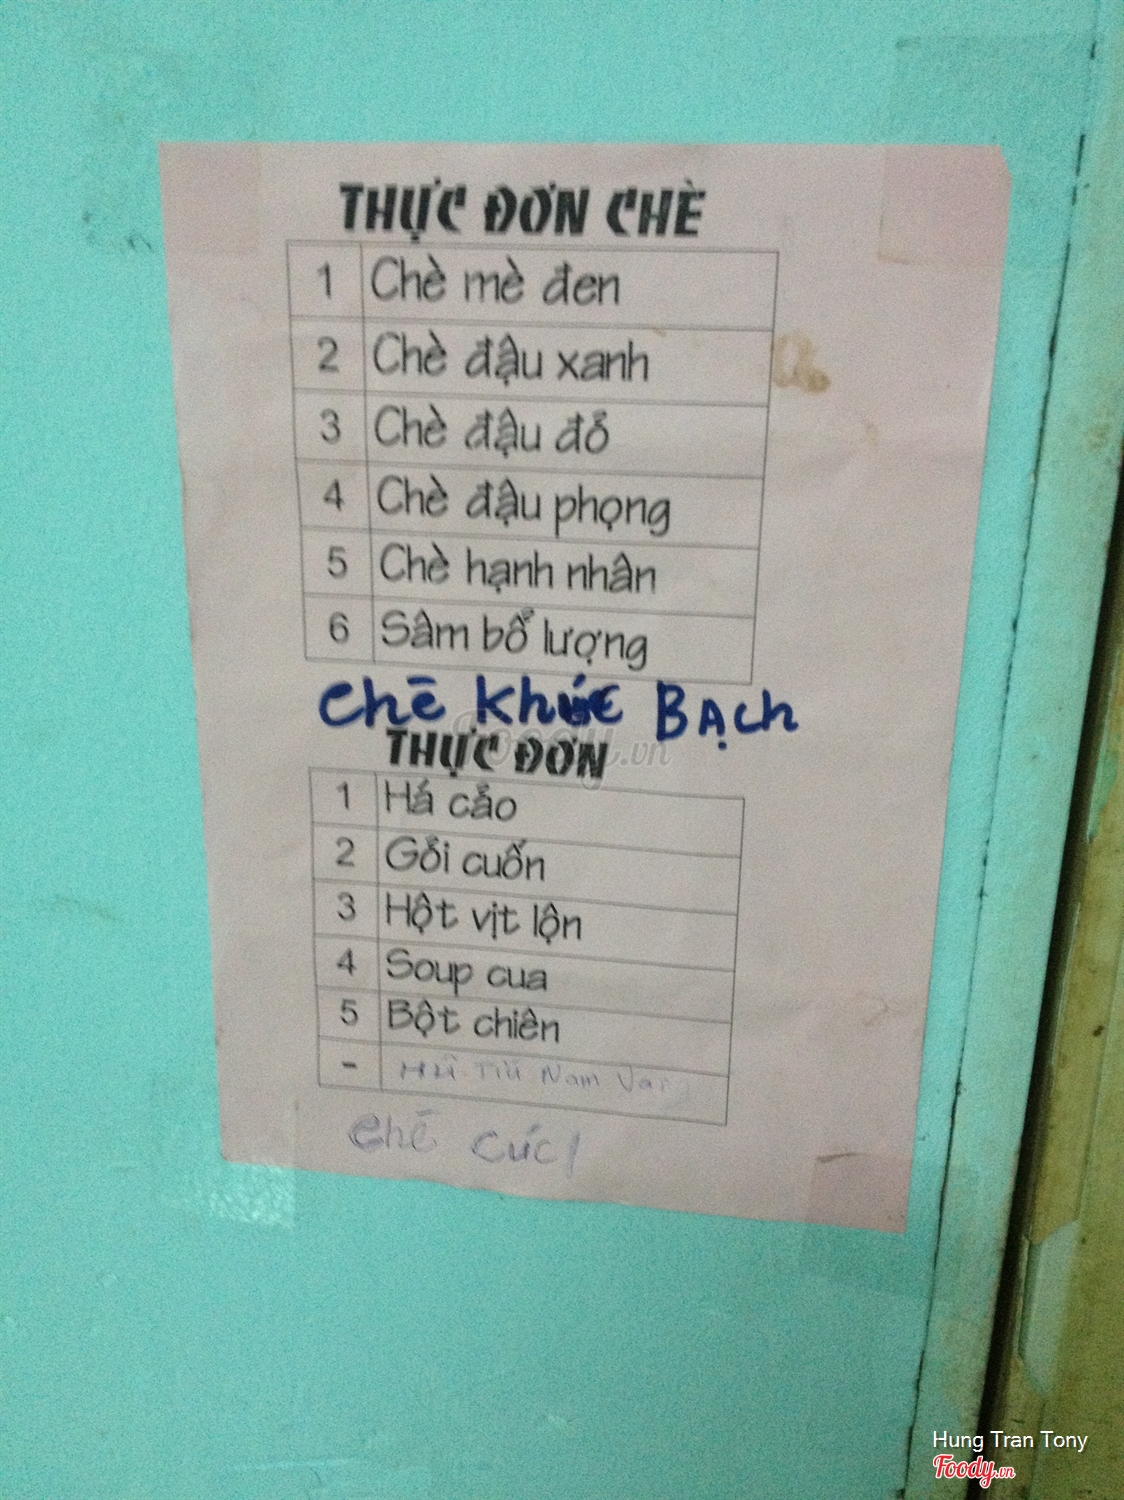 THỰC ĐƠN CHÈ
1 Chè mè đen
2 Chè đậu xanh
3 Chè đậu đỏ
4 Chè đậu phọng
5 Chè hạnh nhân
6 Sâm bổ lượng
Chè KhúC BẠch
Foody.vn
THỰC ĐƠN
1 Há cảo
2 Gỏi cuốn
3 Hột vịt lộn
4 Soup cua
5 Bột chiên
- Hủ Tiú Nam Vang
Chè CúC
Hung Tran Tony
Foody.vn